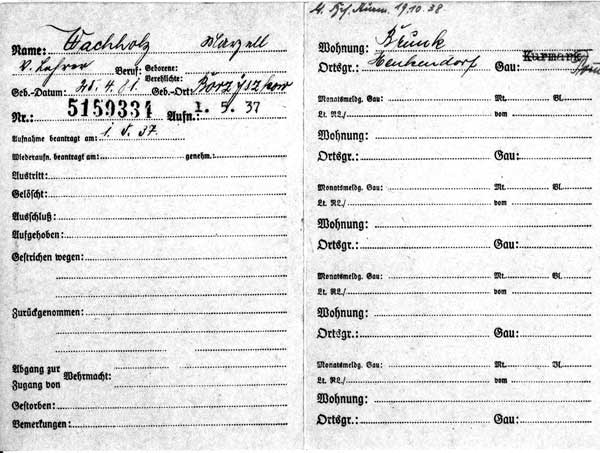 Name: Wachholz Marzell
V. Lehrer Beruf: Geborene:
Verehelichte:
Geb.-Datum: 25.4.81. Geb.-Ort: Borzyszkow
Nr.: 5159334 Aufn.: 1. 5. 37
Aufnahme beantragt am: 1. 5. 37.
Wiederaufn. beantragt am: genehm.:
Austritt:
Gelöscht:
Ausschluß:
Aufgehoben:
Gestrichen wegen:
Zurückgenommen:
Abgang zur
Zugang von Wehrmacht:
Gestorben:
Bemerkungen:
19.10.38
Wohnung:
Ortsgr.: Henkendorf Gau: Kurmark
Monatsmeldg. Gau: Mt. Bl.
Lt. RL./ vom
Wohnung:
Ortsgr.: Gau:
Monatsmeldg. Gau: Mt. Bl.
Lt. RL./ vom
Wohnung:
Ortsgr.: Gau:
Monatsmeldg. Gau: Mt. Bl.
Lt. RL./ vom
Wohnung:
Ortsgr.: Gau:
Monatsmeldg. Gau: Mt. Bl.
Lt. RL./ vom
Wohnung:
Ortsgr.: Gau: